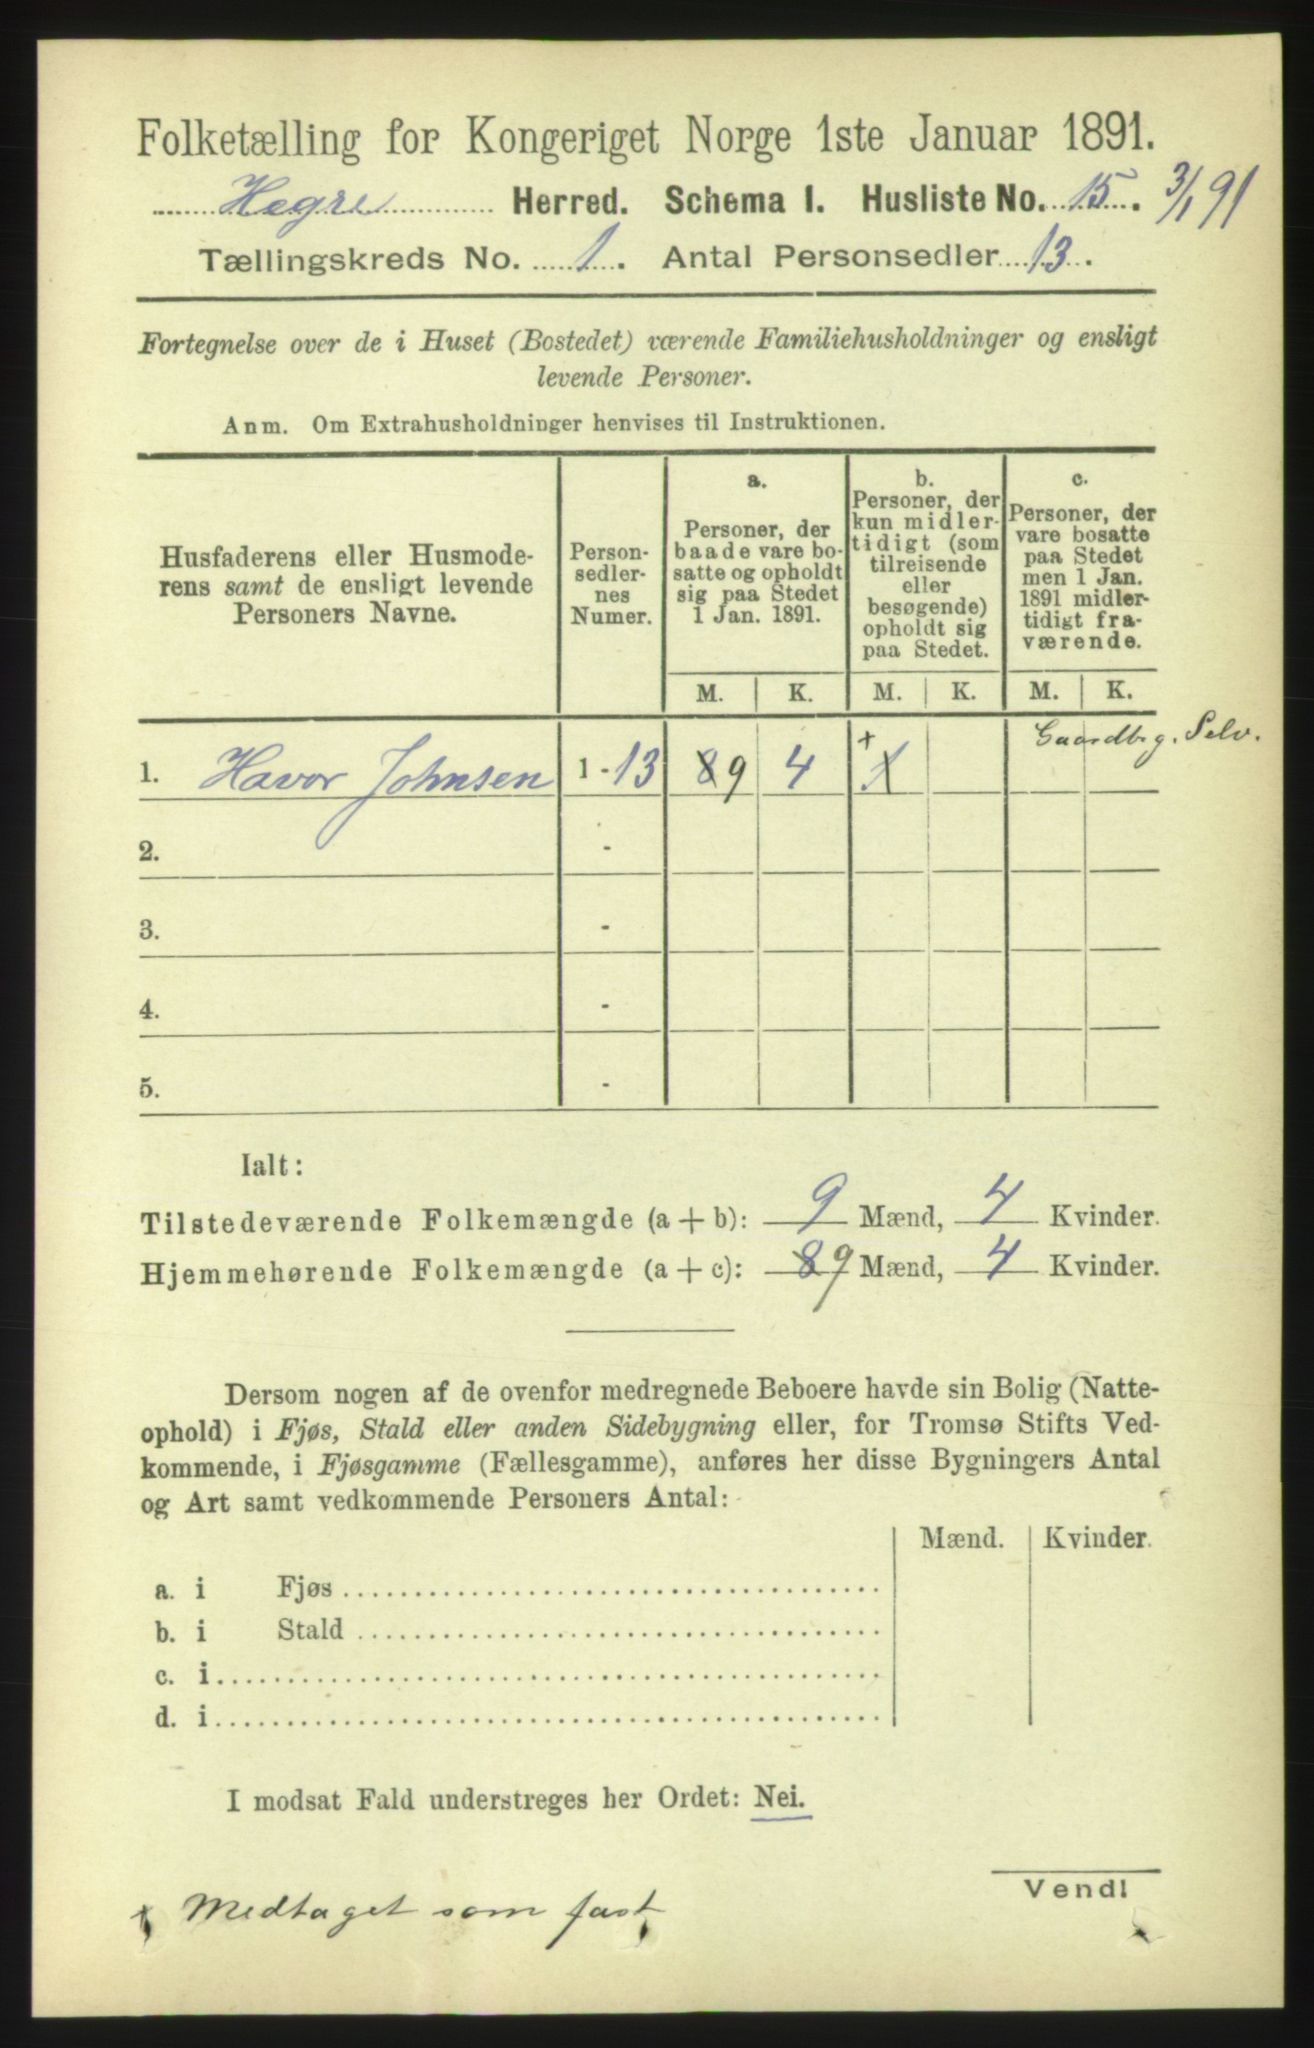 Folketælling for Kongeriget Norge 1ste Januar 1891.
Hegre Herred. Schema I. Husliste No. 15. 3/1 91
Tællingskreds No. 1. Antal Personsedler 13.
Fortegnelse over de i Huset (Bostedet) værende Familiehusholdninger og ensligt
levende Personer.
Anm. Om Extrahusholdninger henvises til Instruktionen.
Husfaderens eller Husmode-
rens samt de ensligt levende
Personers Navne.
Person-
sedler-
nes
Numer.
a.
Personer, der
baade vare bo-
satte og opholdt
sig paa Stedet
1 Jan. 1891.
b.
Personer, der
kun midler-
tidigt (som
tilreisende
eller
besøgende)
opholdt sig
paa Stedet.
c.
Personer, der
vare bosatte
paa Stedet
men 1 Jan.
1891 midler-
tidigt fra-
værende.
M. K. M. K. M. K.
Gaardbrg. Selv.
1. Havor Johnsen 1 - 13 8 9 4 + 1
2. -
3. -
4. -
5. -
Ialt:
Tilstedeværende Folkemængde (a + b): 9 Mænd, 4 Kvinder.
Hjemmehørende Folkemængde (a + c): 8 9 Mænd, 4 Kvinder.
Dersom nogen af de ovenfor medregnede Beboere havde sin Bolig (Natte-
ophold) i Fjøs, Stald eller anden Sidebygning eller, for Tromsø Stifts Ved-
kommende, i Fjøsgamme (Fællesgamme), anføres her disse Bygningers Antal
og Art samt vedkommende Personers Antal:
Mænd. Kvinder.
a. i Fjøs
b. i Stald
c. i
d. i
I modsat Fald understreges her Ordet: Nei.
Vend!
+ Medtaget som fast